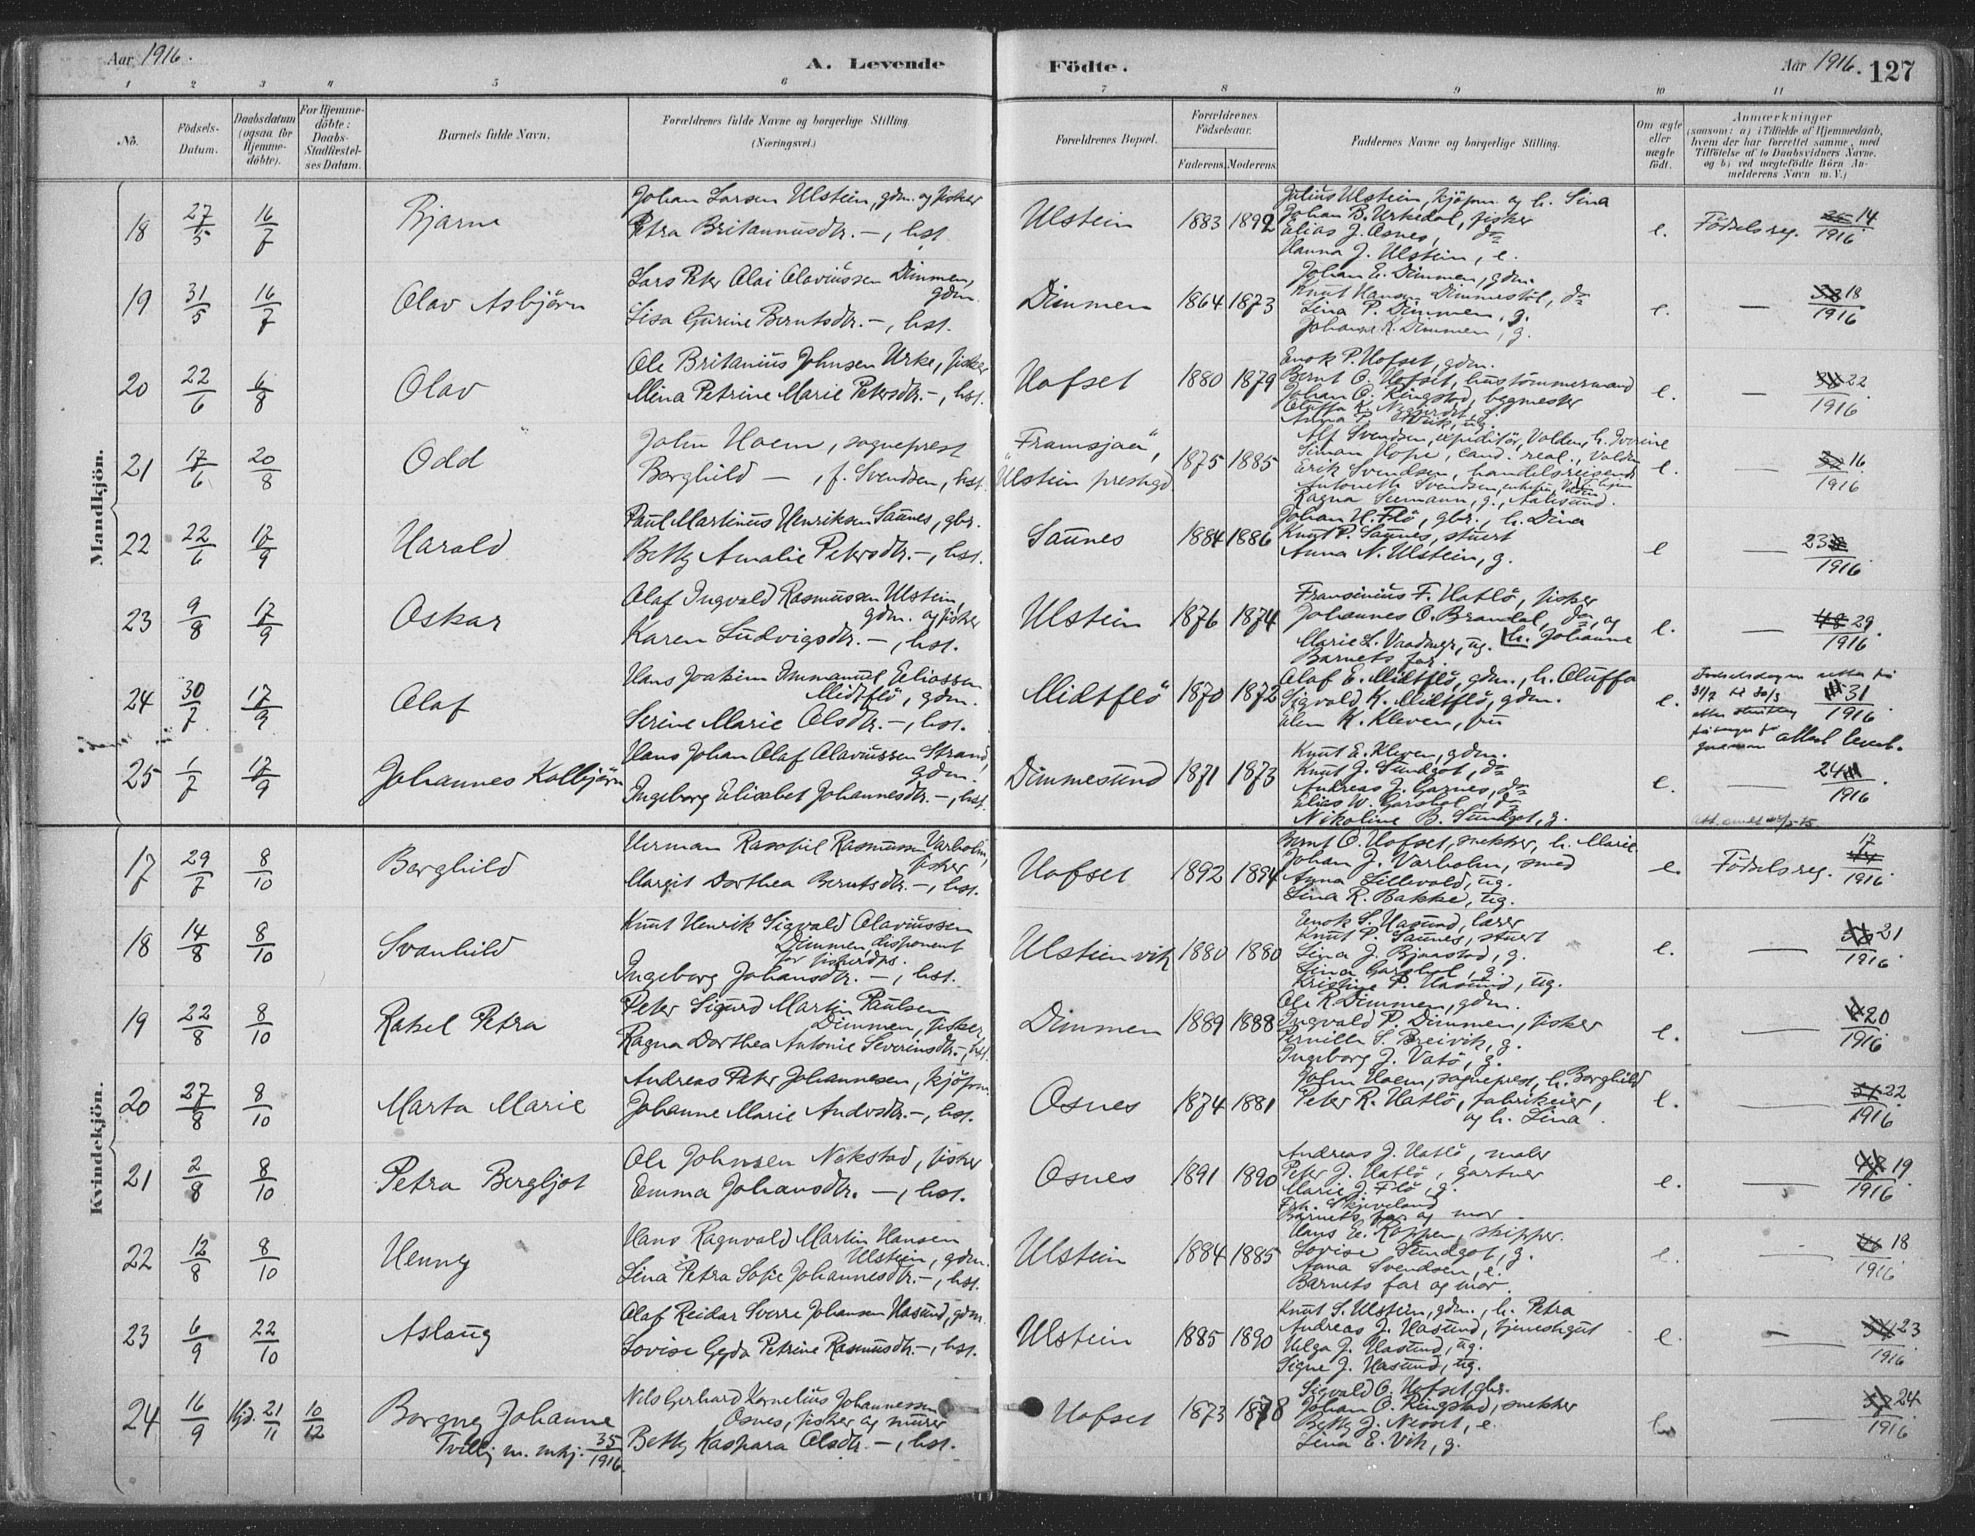 Aar 1916.
A. Levende Födte.
Aar 1916. 127
1 2 3 4 5 6 7 8 9 10 11
No.
Födsels-Datum.
Daabsdatum (ogsaa for Hjemme-döbte).
For Hjemme-döbte: Daabs-Stadfæstel-ses Datum.
Barnets fulde Navn.
Forældrenes fulde Navne og borgerlige Stilling. (Næringsvei.)
Forældrenes Bopæl.
Forældrenes Födselsaar.
Faderens. Moderens.
Faddernes Navne og borgerlige Stilling.
Om ægte eller uægte födt.
Anmærkninger
(saasom: a) i Tilfælde af Hjemmedaab,
hvem der har forrettet samme, med
Tilföielse af to Daabsvidners Navne,
og b) ved uægtefödte Börn An-
melderens Navn m. V.)
Mandkjön.
18 27/5 16/7 Bjarne
Johan Larsen Ulstein, gdm. og fisker
Petra Britannusdtr. –, hst.
Ulstein 1883 1892
Julius Ulstein, kjöpm. og h. Lina
Johan B. Urkedal, fisker
Elias J. Osnes, do
Hanna J. Ulstein, e.
e. Födselsreg. 14/1916
19 31/5 16/7 Olav Asbjörn
Lars Peter Olai Olaviussen Dimmen, gdm.
Lisa Gurine Berntsdtr. –, hst.
Dimmen 1864 1873
Johan E. Dimmen, gdm.
Knut Hansen Dimmestöl, do
Lina P. Dimmen, g.
Johanne K. Dimmen, g.
e. — 18/1916
20 22/6 6/8 Olav
Ole Britanius Johnsen Urke, fisker
Mina Petrine Marie Petersdtr. –, hst.
Hofset 1880 1879
Enok P. Hofset, gdm.
Bernt O. Hofset, hustömmermand
Johan O. Ringstad, bygmester
e. — 22/1916
21 17/6 20/8 Odd
John Hoem, sogneprest
Borghild —, f. Svendsen, hst.
"Framsjaa", Ulstein prestegd
1875 1885
Alf Svendsen, expeditör, Volden, h. Iverine
Simon Hope, cand. real., Volden
Erik Svendsen, handelsreisende
Antonette Svendsen, enkefru, Volden
Ragna Seemann, g., Aalesund.
e. — 16/1916
22 22/6 17/9 Harald
Paul Martinus Henriksen Saunes, gbr.
Betty Amalie Petersdtr. –, hst.
Saunes 1884 1886
Johan H. Flö, gbr., h. Dina
Knut P. Saunes, stuert
Anna N. Ulstein, g.
e — 23/1916
23 9/8 17/9 Oskar
Olaf Ingvald Rasmussen Ulstein, gdm. og fisker
Karen Ludvigsdtr. –, hst.
Ulstein 1876 1874
Fransinius F. Hatlö, fisker
Johannes O. Brandal, do, og h. Johanne
Barnets far.
e. — 29/1916
24 30/7 17/9 Olaf
Hans Joakim Immanuel Eliassen Midtflö, gdm.
Serine Marie Olsdtr. –, hst.
Midtflö 1870 1872
Olaf E. Midtflö, gdm., h. Oluffa
Sigvald K. Midtflö, gdm.
Elen K. Kleven, fru
e. 31/1916
25 1/7 17/9 Johannes Kolbjörn
Hans Johan Olaf Olaviussen Strand, gdm.
Ingeborg Elisabet Johannesdtr. –, hst.
Dimmesund 1871 1873
Knut E. Kleven, gdm.
Knut J. Sundgot, do
Andreas J. Garnes, do
Elias W. Garshol, do
Nikoline B. Sundgot, g.
e. — 24/1916
Kvindekjön.
17 29/7 8/10 Borghild
Herman Rasmussen Varholm, fisker
Margit Dorthea Berntsdtr. –, hst.
Hofset 1892 1894
Bernt O. Hofset, snekker, h. Marie
Johan J. Varholm, smed
Anna Lillevold, ug.
Lina R. Bakke, ug.
e. Födselsreg. 17/1916
18 14/8 8/10 Svanhild
Knut Henrik Sigvald Olaviussen Dimmen, disponent
Ingeborg Johansdtr. –, hst.
Ulsteinvik 1880 1880
Enok S. Hasund, lærer
Knut P. Saunes, stuert
Lina J. Bjaastad, g.
Lina Garshol, g.
Kristine P. Hasund, ug.
e. — 21/1916
19 22/8 8/10 Rakel Petra
Peter Sigurd Martin Paulsen Dimmen, fisker
Ragna Dorthea Antonie Severinsdtr. –, hst.
Dimmen 1889 1888
Ole R. Dimmen, gdm.
Ingvald P. Dimmen, fisker
Pernille S. Breivik, g.
Ingeborg J. Vatö, g.
e. — 20/1916
20 27/8 8/10 Marta Marie
Andreas Peter Johannesen, kjöpm.
Johanne Marie Andvsdtr. –, hst.
Osnes 1874 1881
John Hoem, sogneprest, h. Borghild
Peter R. Hatlö, fabrikeier, og h. Lina.
e. — 22/1916
21 2/8 8/10 Petra Bergljot
Ole Johnsen Nekstad, fisker
Emma Johansdtr. –, hst.
Osnes 1891 1890
Andreas J. Hatlö, maler
Peter J. Hatlö, gartner
Marie J. Flö, g.
Frk. Skjeveland
Barnets far og mor.
e. — 19/1916
22 12/8 8/10 Henny
Hans Ragnvald Martin Hansen Ulstein, gdm.
Lina Petra Sofie Johannesdtr. –, hst.
Ulstein 1884 1885
Hans E. Koppen, skipper.
Lovise Sundgot, g.
Anna Svendsen, e.
Barnets far og mor.
e. — 18/1916
23 6/9 22/10 Aslaug
Olaf Reidar Sverre Johansen Hasund, gdm.
Lovise Gyda Petrine Rasmusdtr. –, hst.
Ulstein 1885 1890
Knut S. Ulstein, gdm., h. Petra
Andreas J. Hasund, tjenestegut
Helga J. Hasund, ug.
Signe J. Hasund, ug.
e. — 23/1916
24 16/9 Hjd. 21/11 10/12 Borgny Johanne
Tvilling m. mkj. 35/1916.
Nils Gerhard Kornelius Johannessen Osnes, fisker og murer
Betty Kaspara Olsdtr. –, hst.
Hofset 1873 1878
Sigvald O. Hofset, gbr.
Johan O. Ringstad, snekker
Betty J. Nesset, e.
Lina E. Vik, g.
24/1916